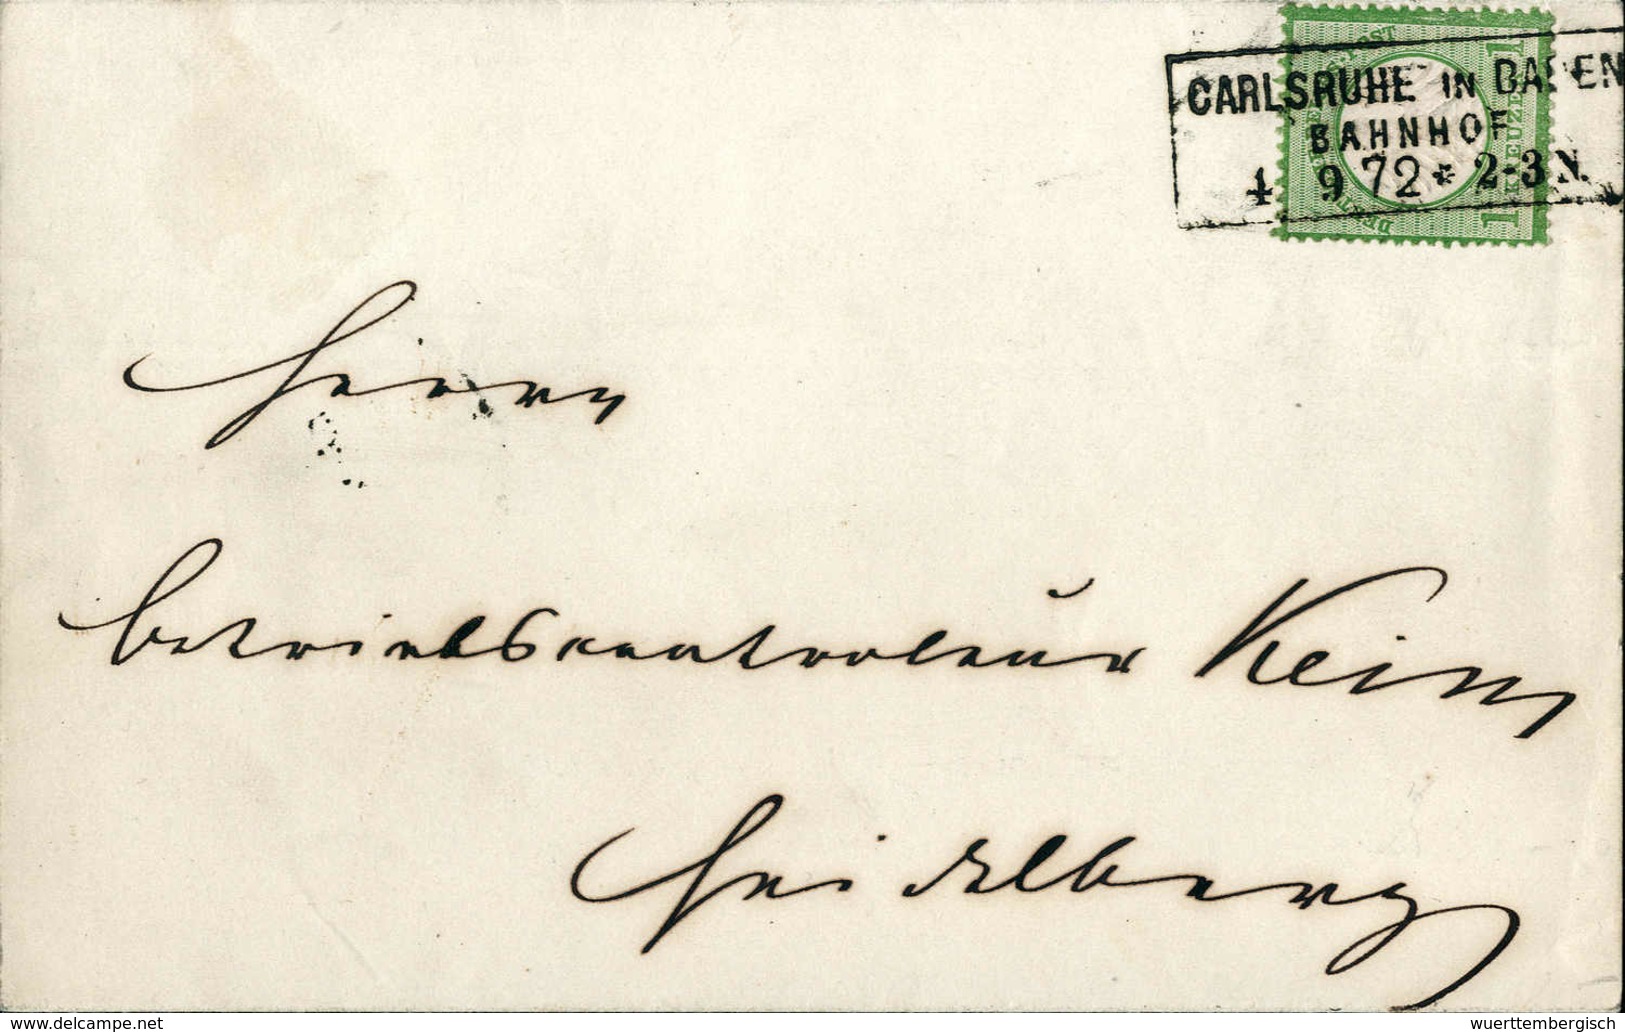 CARLSRUHE IN BADEN
BAHNHOF
4 9 72 * 2-3 N.
1 KREUZER 1
Herrn
Betriebscontroleur Keim
Heidelberg
www.delcampe.net
wuerttembergisch